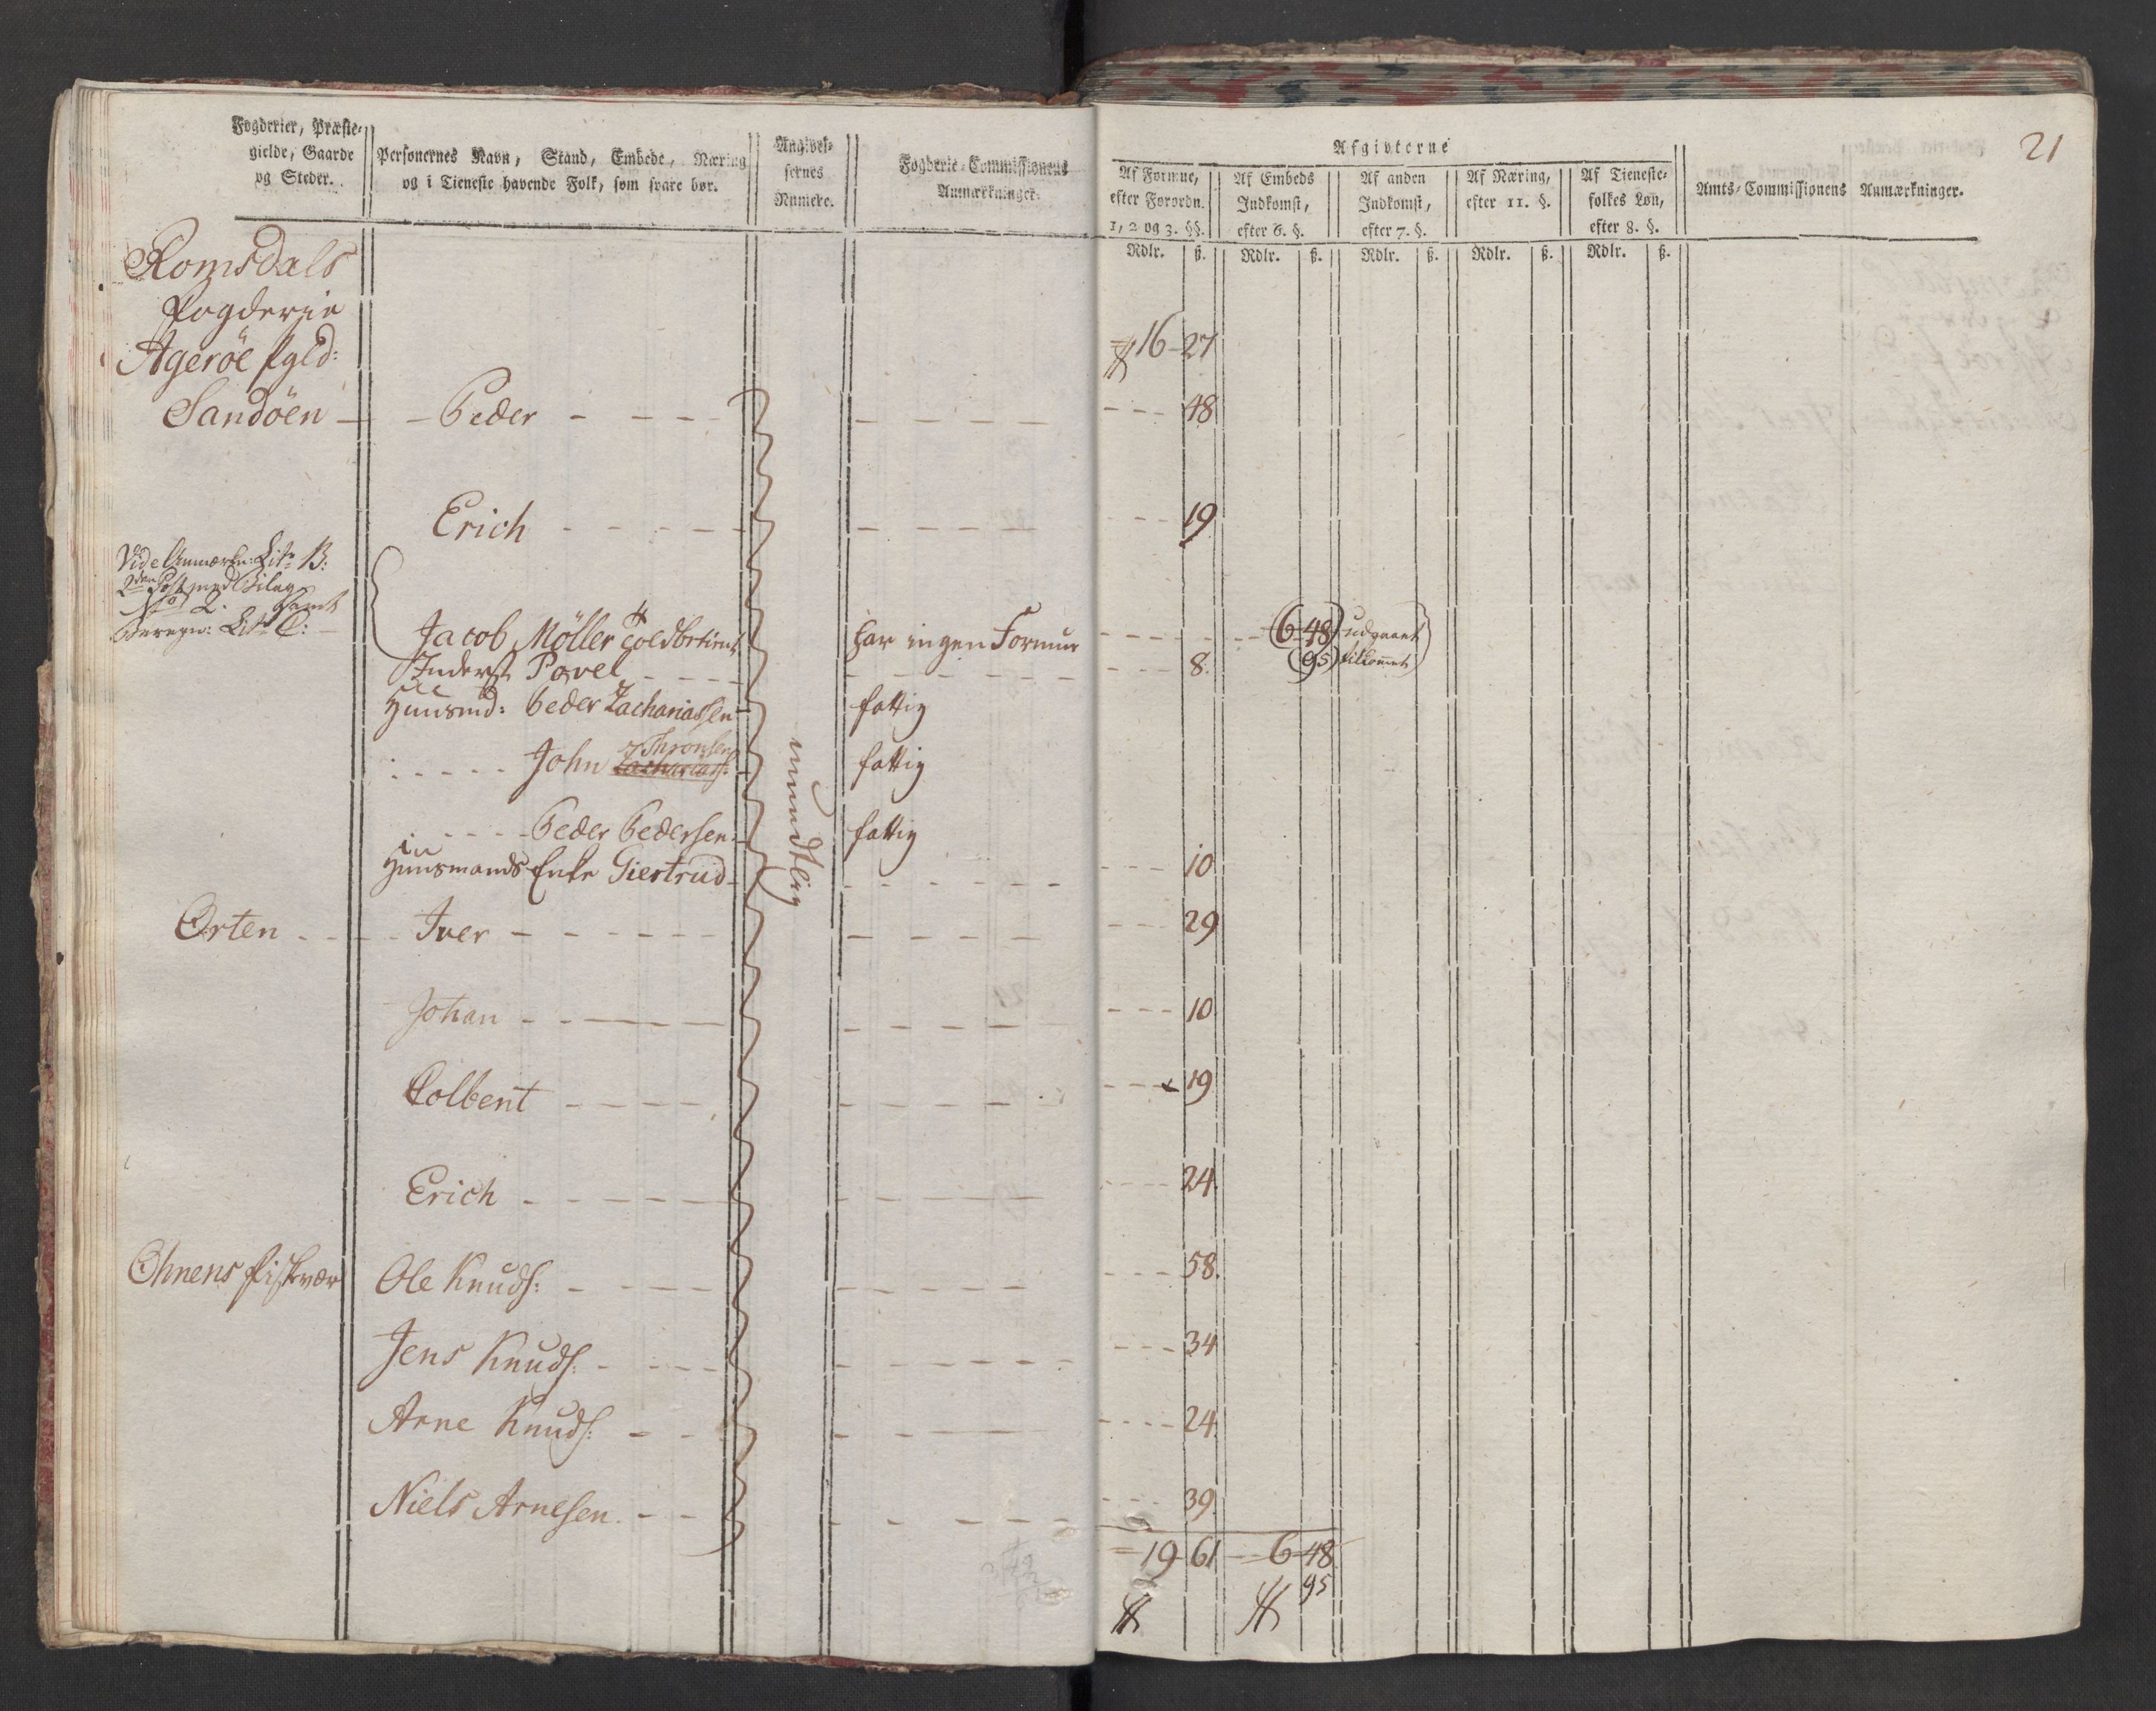 21
Fogderier, Præste-
gielde, Gaarde
og Steder.
Personernes Navn, Stand, Embede, Næring
og i Tieneste havende Folk, som svare bør.
Angivel-
sernes
Numere.
Fogderie-Commissionens
Anmærkninger.
Afgivterne
Af Formue,
efter Forordn.
1, 2 og 3. §§.
Af Embeds
Indkomst,
efter 6. §.
Af anden
Indkomst,
efter 7. §.
Af Næring,
efter 11. §.
Af Tieneste-
folkes Løn,
efter 8. §.
Amts-Commissionens Anmærkninger.
Rdlr. ß. Rdlr. ß. Rdlr. ß. Rdlr. ß. Rdlr. ß.
Romsdals
Fogderie
Agerøe Pgld: 16 27
Sandøen - Peder - - - - 48
Erich - - - - 19
Vide Anmærkn: Litr B:
2den Post med Bilag
No 2. samt
Beregn: Litr C:
Jacob Möller Toldbetient har ingen Formue - - - (6 48) udgaaet
Inderst Povel - - - 8. (95) tilkommet
Huusmd: Peder Zachariassen - fattig
- - - John Zachariass: Thronsen fattig
- - - Peder Pedersen. fattig
mundtlig
Huusmands Enke Giertrud - - - 10
Orten - - - Iver - - - 29
Johan - - - 10
Colbent - - - 19
Erich - - - 24
Ohnens Fiskevær Ole Knuds: - - - 58.
Jens Knuds: - - - 34
Arne Knuds: - - - 24
Niels Arnesen. - - - 39.
19 61 - 6 48
95